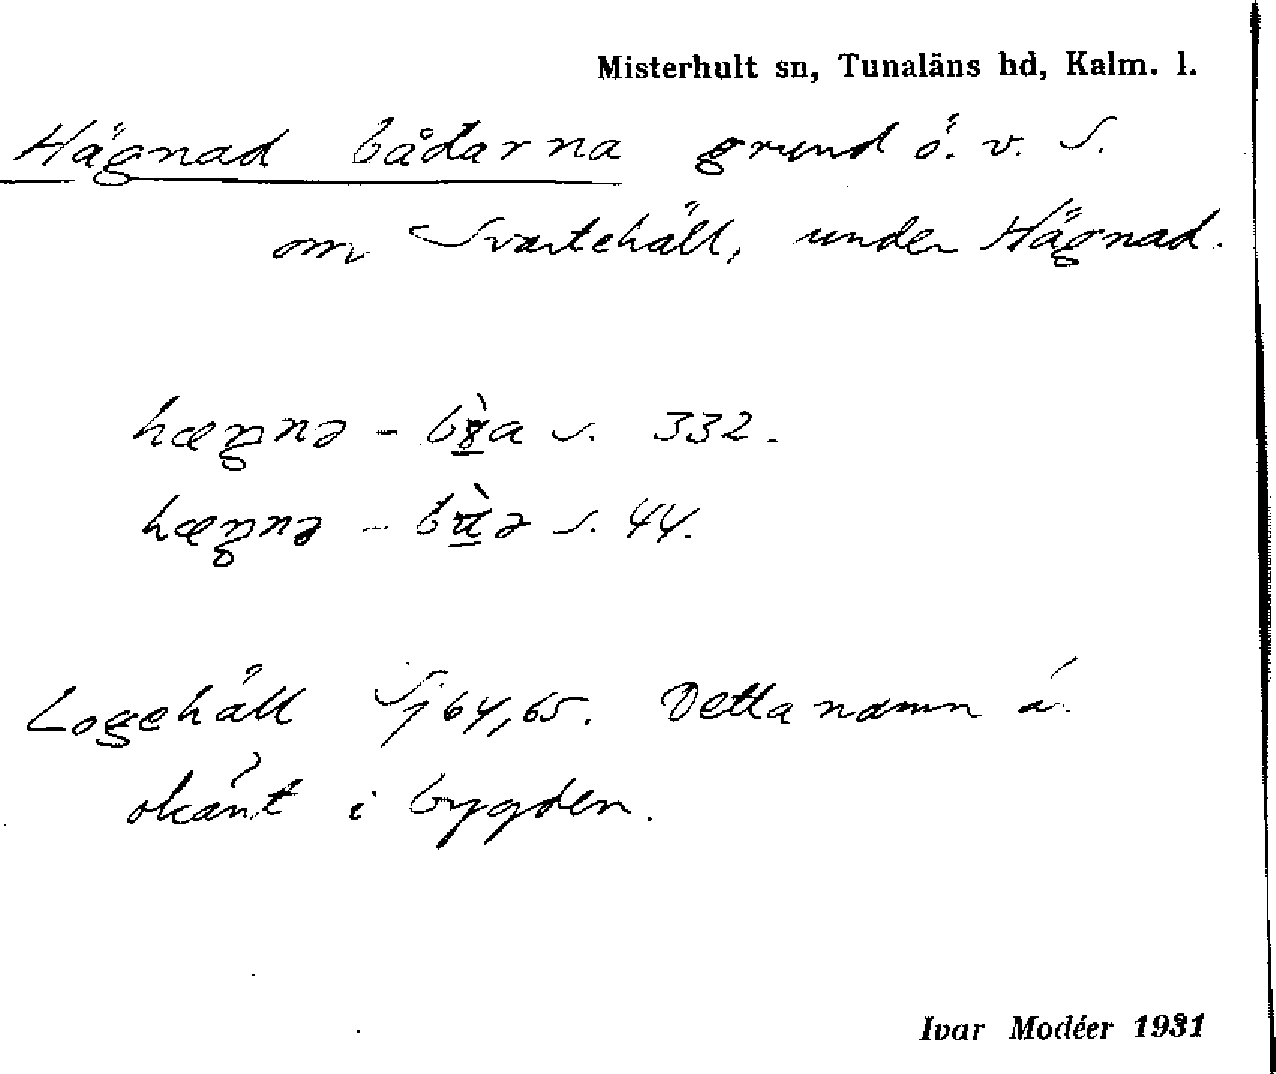 Misterhult sn, Tunaläns hd, Kalm. l.
Hägnad bådarna grund ö. v. S.
om Svartehäll, under Hägnad.
s. 332.
s. 44.
Logehäll Sj 64, 65. Detta namn ä.
okänt i bygden.
Ivar Modéer 1931